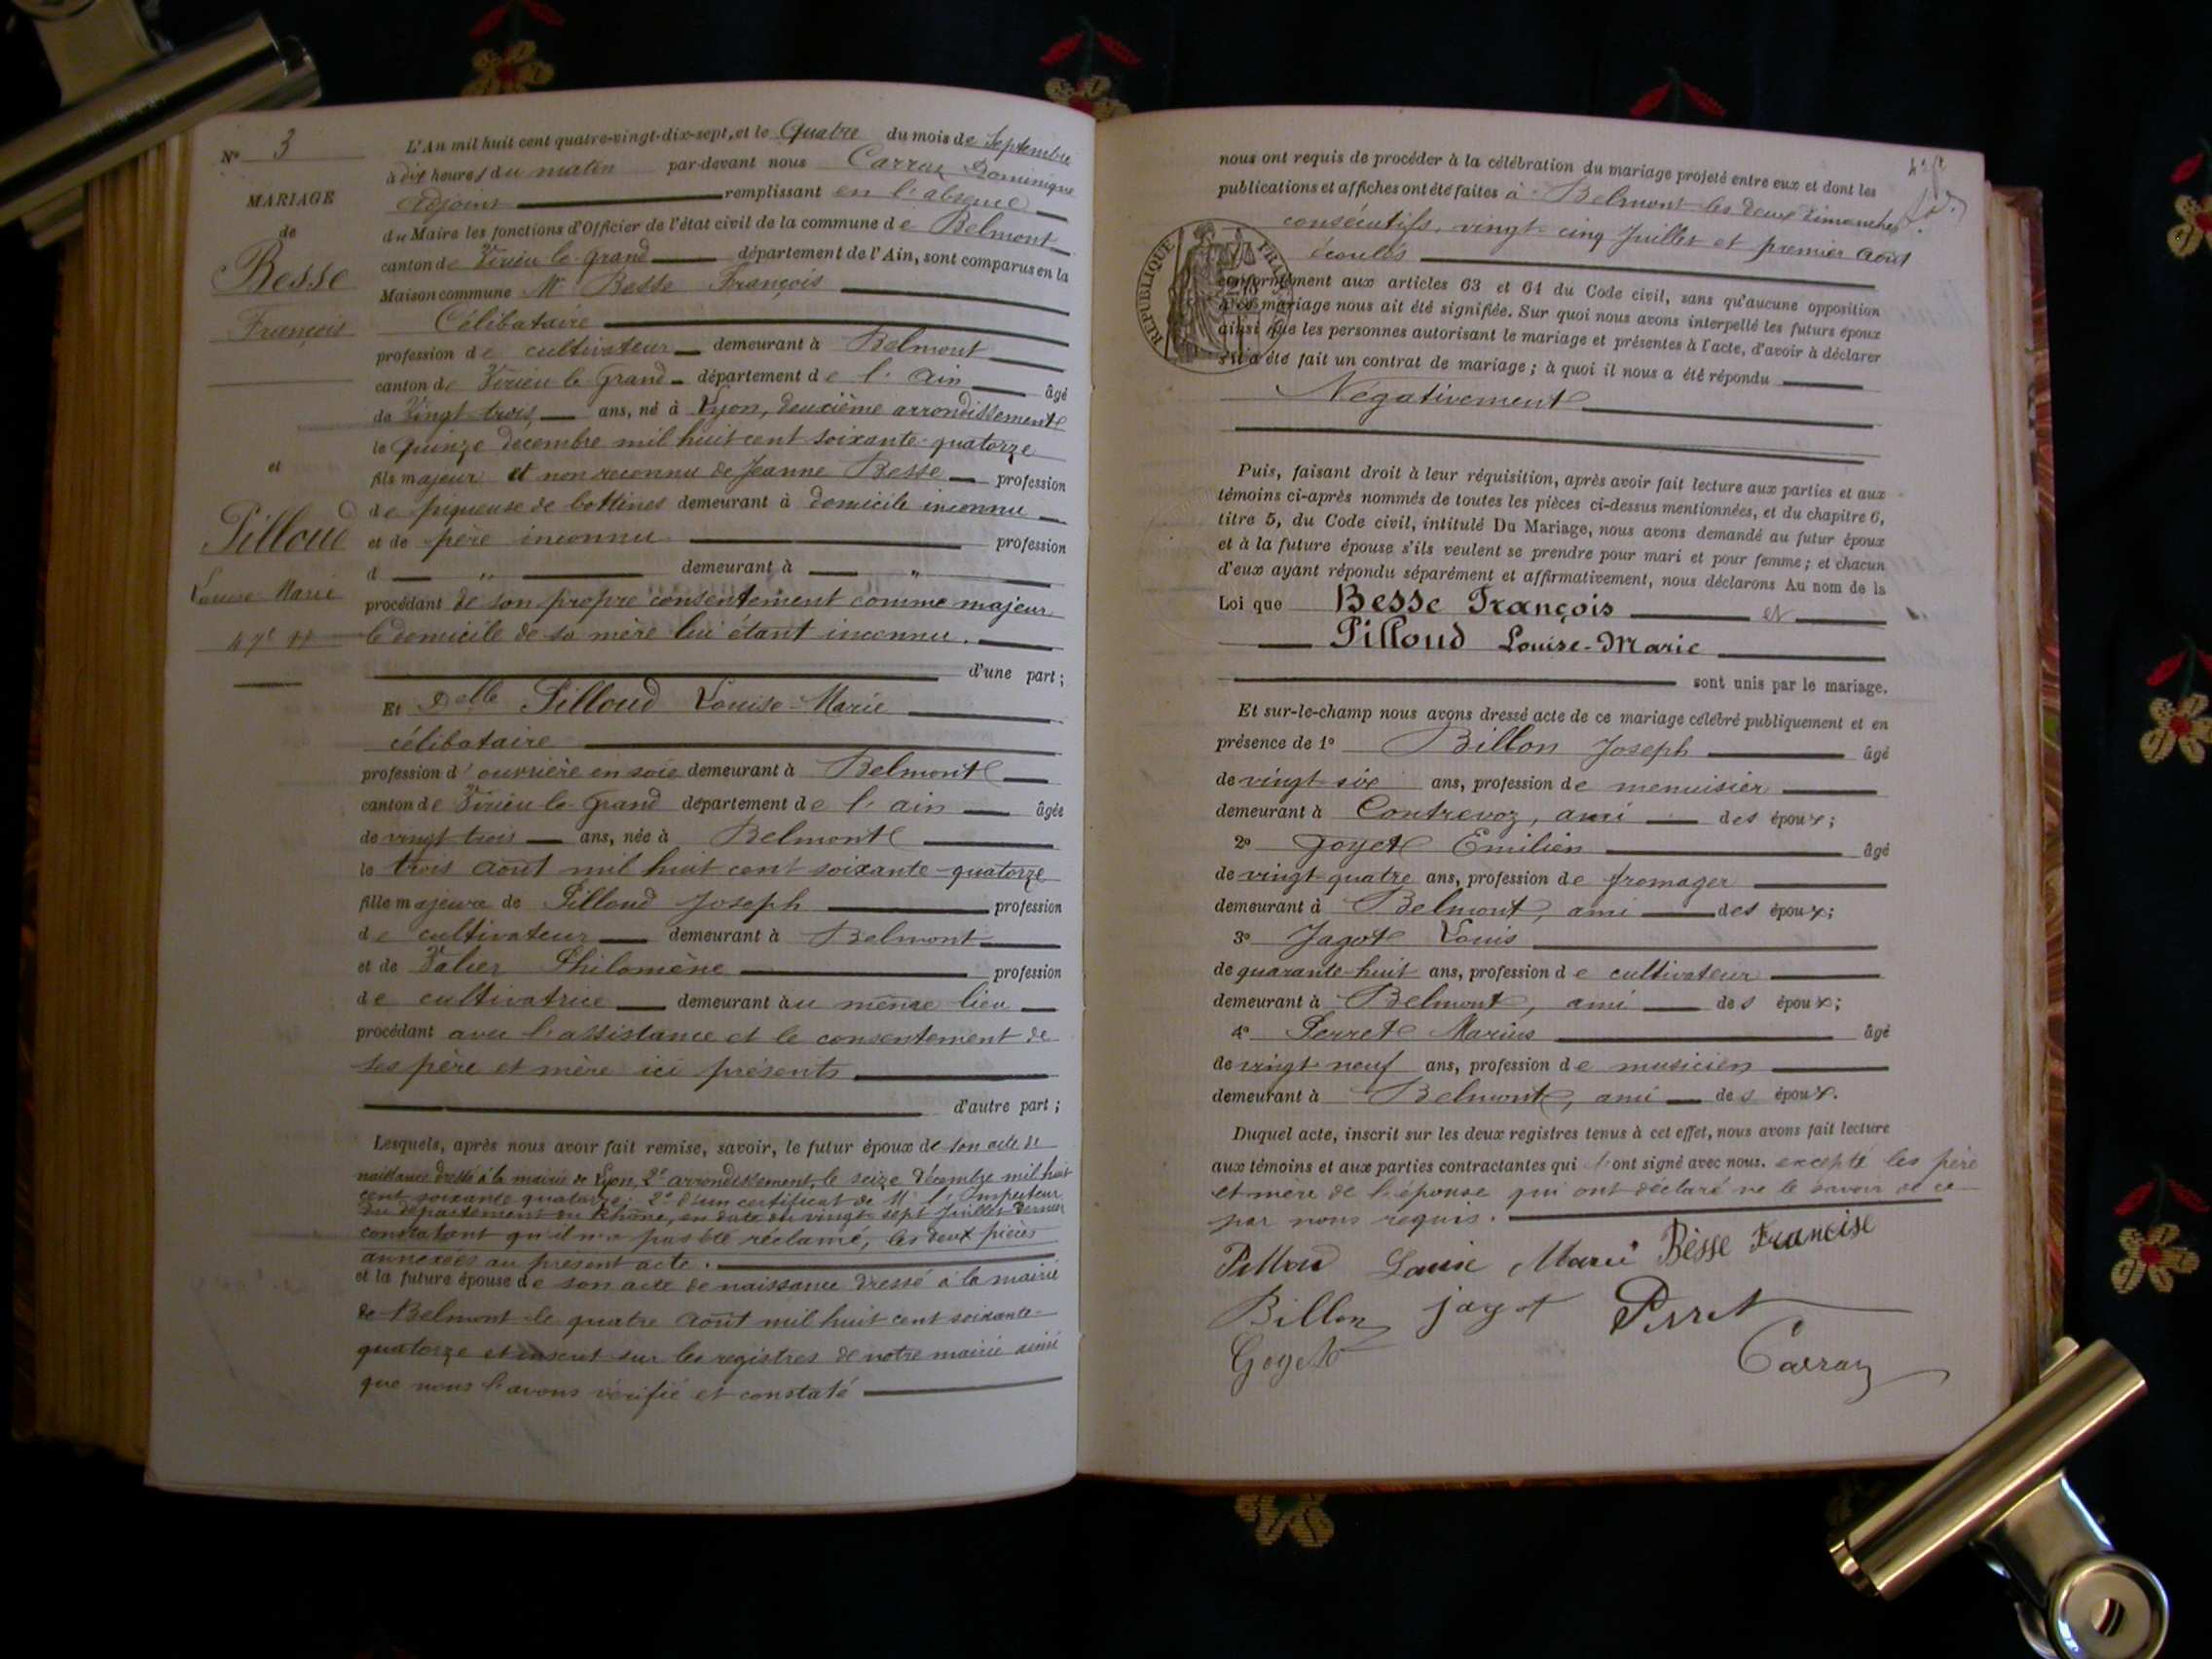 N° 3
MARIAGE
de
Besse
François
et
Pilloud
Louise Marie
L'An mil huit cent quatre-vingt-dix-sept, et le Quatre du mois de Septembre
à dix heures du matin par-devant nous Carraz Dominique
adjoint remplissant en l'absence
du Maire les fonctions d'Officier de l'état civil de la commune de Belmont
canton de Virieu le Grand département de l'Ain, sont comparus en la
Maison commune Mr Besse François
Célibataire
profession de cultivateur demeurant à Belmont
canton de Virieu le Grand département de l'Ain âgé
de Vingt trois ans, né à Lyon, deuxième arrondissement
le quinze decembre mil huit cent soixante-quatorze
fils majeur et non reconnu de Jeanne Besse profession
de piqueuse de bottines demeurant à domicile inconnu
et de père inconnu profession
d " demeurant à "
procédant de son propre consentement comme majeur
le domicile de sa mère lui étant inconnu.
d'une part;
Et Delle Pilloud Louise-Marie
célibataire
profession d'ouvrière en soie demeurant à Belmont
canton de Virieu le Grand département de l'ain âgée
de vingt trois ans, née à Belmont
le trois août mil huit cent soixante-quatorze
fille majeure de Pilloud Joseph profession
de cultivateur demeurant à Belmont
et de Valier Philomène profession
de cultivatrice demeurant au même lieu
procédant avec l'assistance et le consentement de
ses père et mère ici présents
d'autre part;
Lesquels, après nous avoir fait remise, savoir, le futur époux de son acte de
naissance dressé à la mairie de Lyon, 2e arrondissement, le seize décembre mil huit
cent soixante quatorze; 2° d'un certificat de Mr l'Inspecteur
du département du Rhône, en date du vingt-sept Juillet dernier
constatant qu'il n'a pas été réclamé, les deux pièces
annexées au présent acte.
et la future épouse de son acte de naissance dressé à la mairie
de Belmont le quatre août mil huit cent soixante-
quatorze et inscrit sur les registres de notre mairie ainsi
que nous l'avons vérifié et constaté
nous ont requis de procéder à la célébration du mariage projeté entre eux et dont les
publications et affiches ont été faites à Belmont les deux dimanches
consécutifs, vingt-cinq Juillet et premier août
écoulés
RÉPUBLIQUE FRANÇAISE
conformément aux articles 63 et 64 du Code civil, sans qu'aucune opposition
à ce mariage nous ait été signifiée. Sur quoi nous avons interpellé les futurs époux
ainsi que les personnes autorisant le mariage et présentes à l'acte, d'avoir à déclarer
s'il a été fait un contrat de mariage; à quoi il nous a été répondu
Négativement
Puis, faisant droit à leur réquisition, après avoir fait lecture aux parties et aux
témoins ci-après nommés de toutes les pièces ci-dessus mentionnées, et du chapitre 6,
titre 5, du Code civil, intitulé Du Mariage, nous avons demandé au futur époux
et à la future épouse s'ils veulent se prendre pour mari et pour femme; et chacun
d'eux ayant répondu séparément et affirmativement, nous déclarons Au nom de la
Loi que Besse François et
Pilloud Louise-Marie
sont unis par le mariage.
Et sur-le-champ nous avons dressé acte de ce mariage célébré publiquement et en
présence de 1° Billon Joseph âgé
de vingt-six ans, profession de menuisier
demeurant à Contrevoz, ami des époux;
2° Goyet Emilien âgé
de vingt-quatre ans, profession de fromager
demeurant à Belmont, ami des époux;
3° Jagot Louis
de quarante-huit ans, profession de cultivateur
demeurant à Belmont, ami des époux;
4° Perret Marius âgé
de vingt neuf ans, profession de musicien
demeurant à Belmont, ami des époux.
Duquel acte, inscrit sur les deux registres tenus à cet effet, nous avons fait lecture
aux témoins et aux parties contractantes qui l'ont signé avec nous. excepté les père
et mère de l'épouse qui ont déclaré ne le savoir de ce
par nous requis.
Pilloud Louise Marie Bésse Francise
Billon jagot Perret
Goyet Carraz